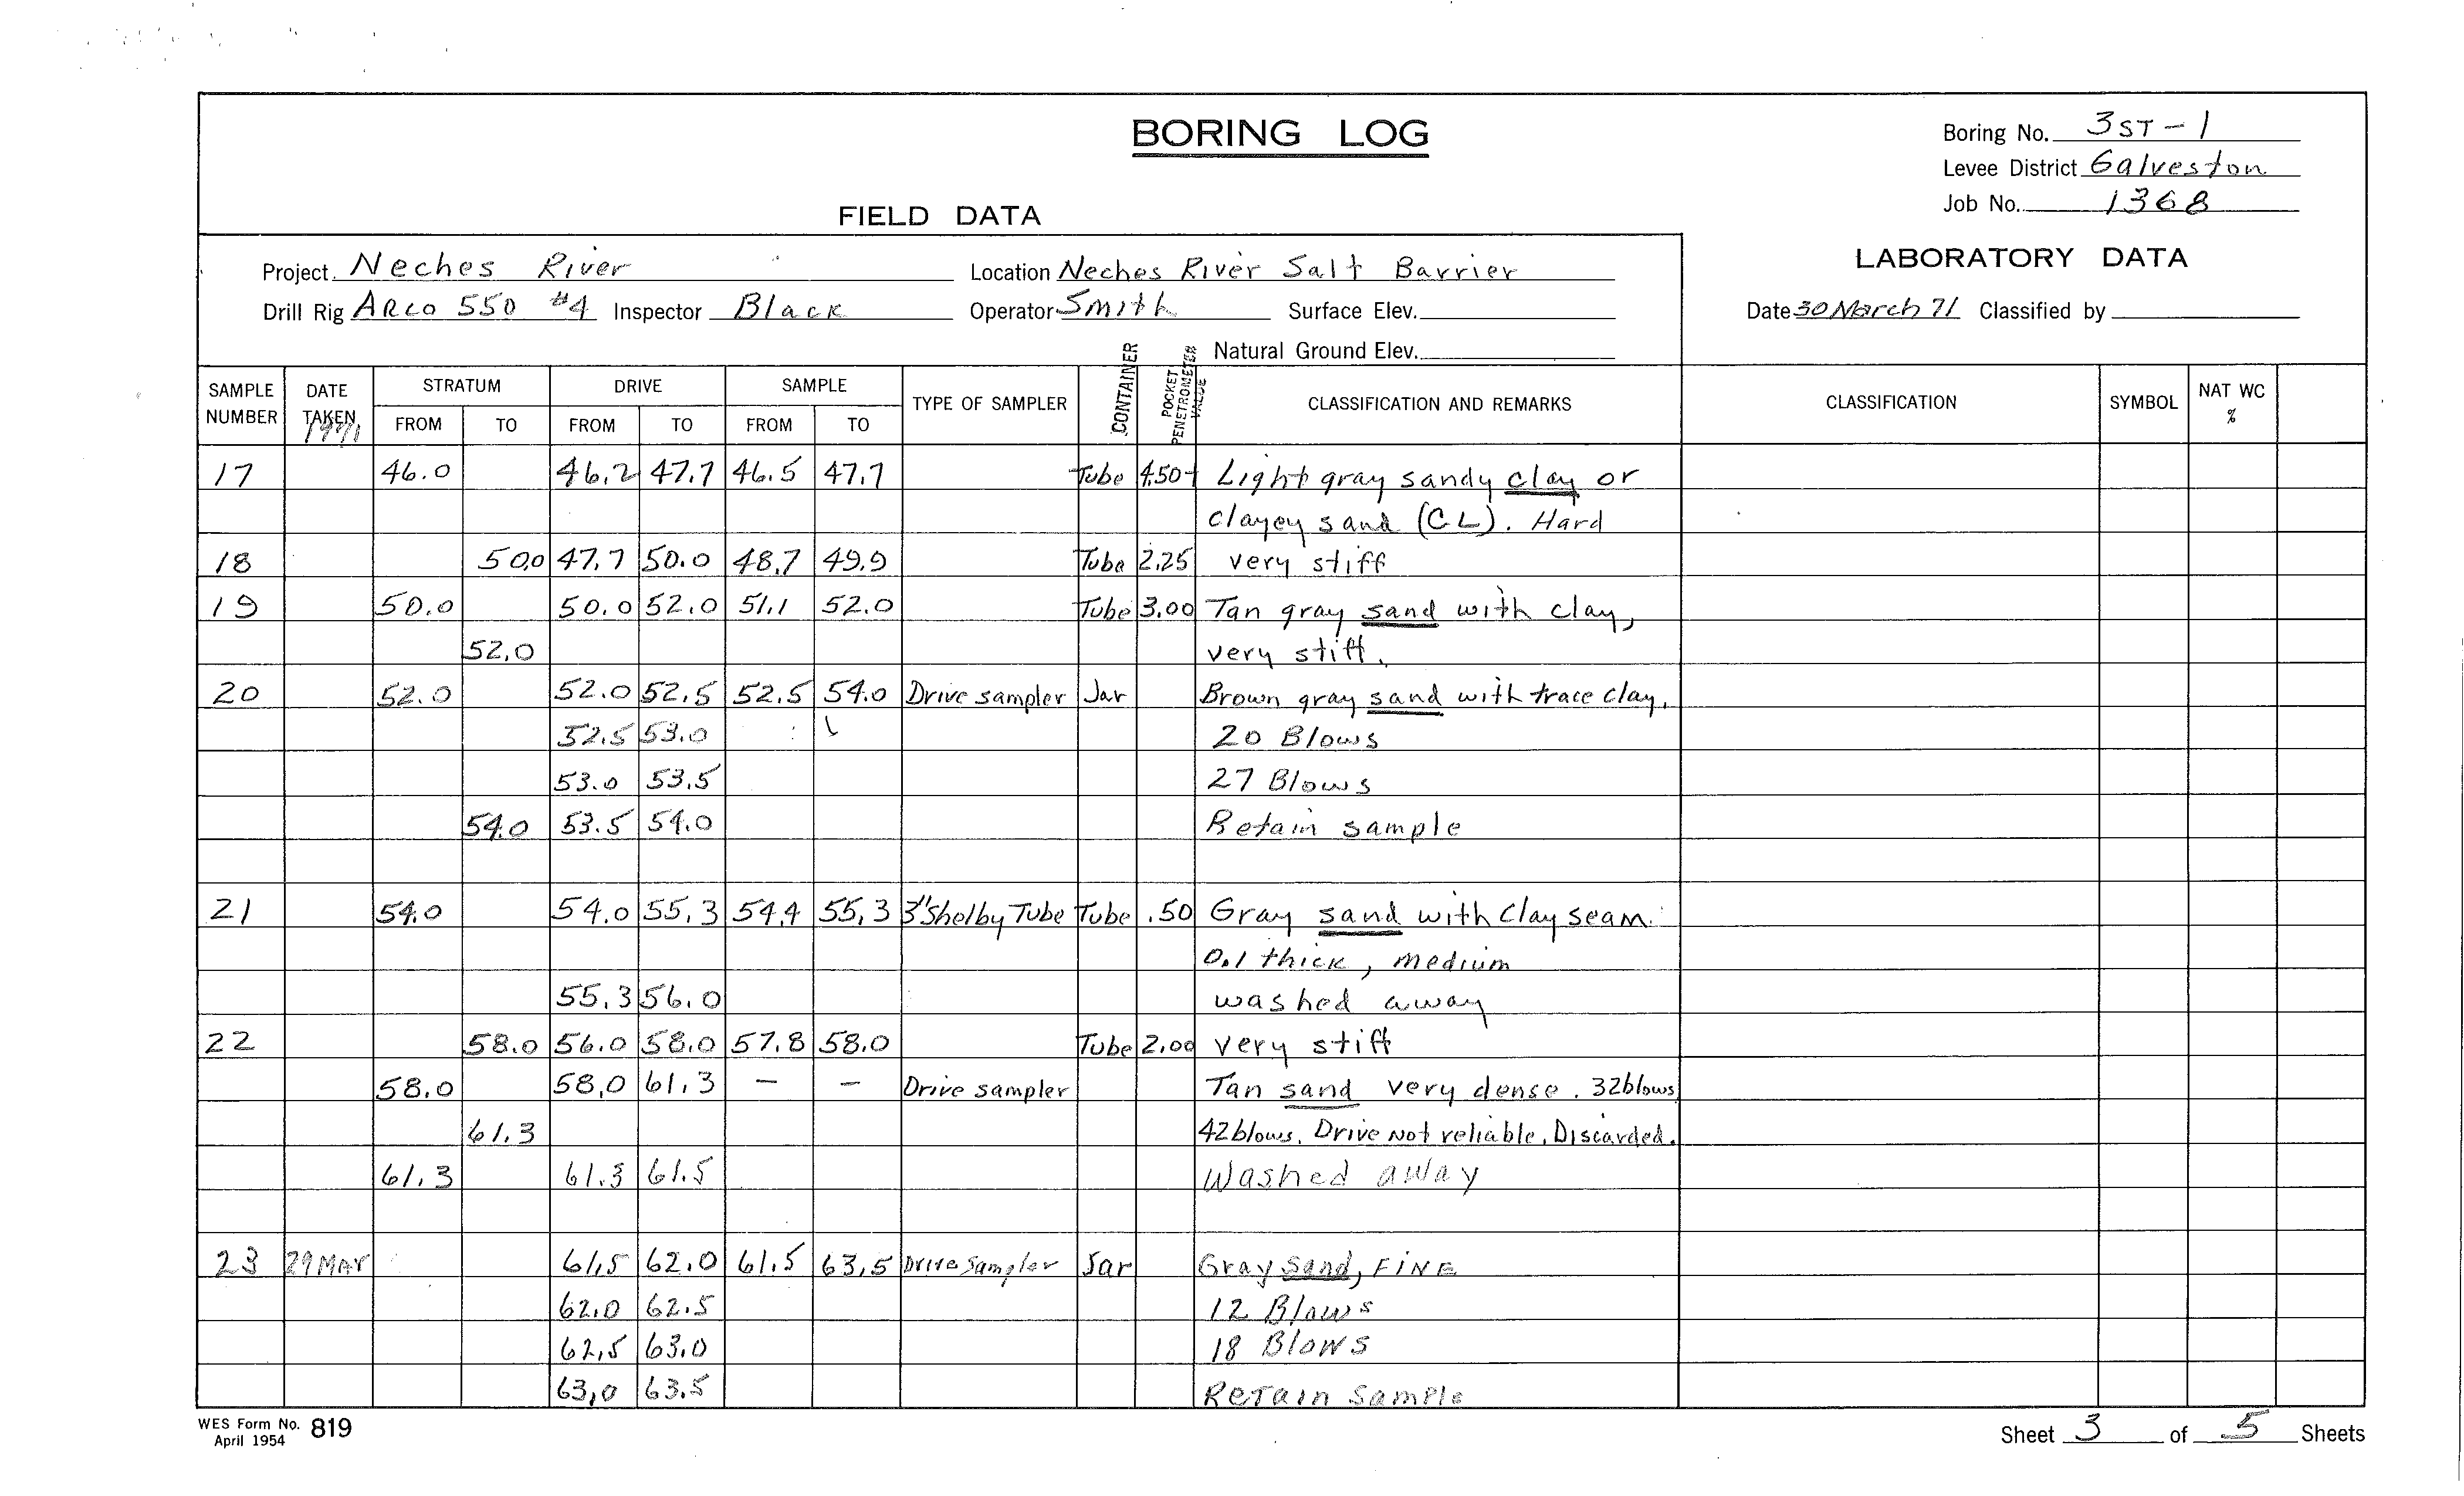 BORING LOG
Boring No. 3ST-1
Levee District Galveston
Job No. 1368
FIELD DATA
LABORATORY DATA
Project Neches River Location Neches River Salt Barrier
Drill Rig Arco 550 #4 Inspector Black Operator Smith Surface Elev. Date 30 March 71 Classified by
Natural Ground Elev.
SAMPLE NUMBER DATE TAKEN 1971 STRATUM FROM TO DRIVE FROM TO SAMPLE FROM TO TYPE OF SAMPLER CONTAINER POCKET PENETROMETER VALUE CLASSIFICATION AND REMARKS CLASSIFICATION SYMBOL NAT WC %
17 46.0 46.2 47.7 46.5 47.7 Tube 4.50+ Light gray sandy clay or
clayey sand (CL). Hard
18 50.0 47.7 50.0 48.7 49.9 Tube 2.25 very stiff
19 50.0 50.0 52.0 51.1 52.0 Tube 3.00 Tan gray sand with clay,
52.0 very stiff.
20 52.0 52.0 52.5 52.5 54.0 Drive sampler Jar Brown gray sand with trace clay.
52.5 53.0 20 Blows
53.0 53.5 27 Blows
54.0 53.5 54.0 Retain sample
21 54.0 54.0 55.3 54.4 55.3 3" Shelby Tube Tube .50 Gray sand with clay seam
0.1 thick, medium
55.3 56.0 washed away
22 58.0 56.0 58.0 57.8 58.0 Tube 2.00 very stiff
58.0 58.0 61.3 – – Drive sampler Tan sand very dense. 32 blows
61.3 42 blows. Drive Not reliable. Discarded.
61.3 61.3 61.5 Washed away
23 29 MAR 61.5 62.0 61.5 63.5 Drive Sampler Jar Gray Sand, FINE
62.0 62.5 12 Blows
62.5 63.0 18 Blows
63.0 63.5 Retain Sample
WES Form No. 819
April 1954
Sheet 3 of 5 Sheets